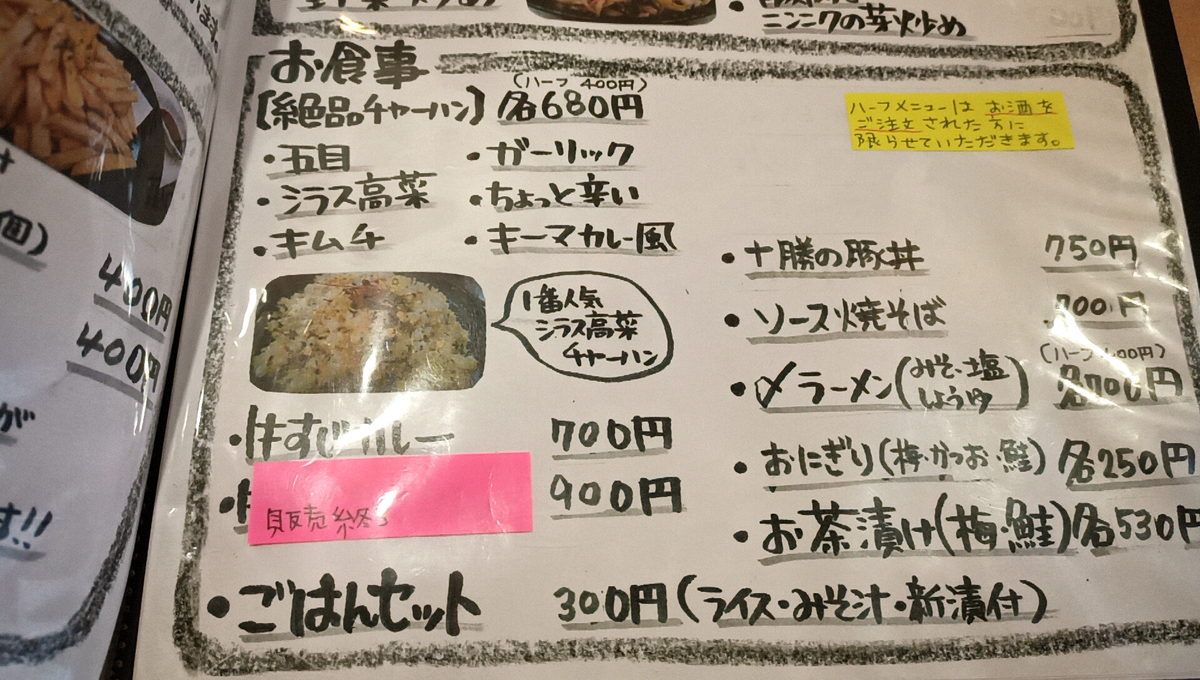 ニンニクの芽炒め
お食事
(ハーフ 400円)
【絶品チャーハン】各680円
・五目 ・ガーリック
・シラス高菜 ・ちょっと辛い
・キムチ ・キーマカレー風
1番人気
シラス高菜
チャーハン
・牛すじカレー 700円
販売終了
900円
・ごはんセット 300円(ライス・みそ汁・新漬付)
ハーフメニューは お酒を
ご注文された方に
限らせていただきます。
・十勝の豚丼 750円
・ソース焼そば 700円
(ハーフ 400円)
・〆ラーメン(みそ・塩 しょうゆ) 各700円
・おにぎり(梅・かつお・鮭) 各250円
・お茶漬け(梅・鮭) 各530円
個)
400円
400円
が
す!!